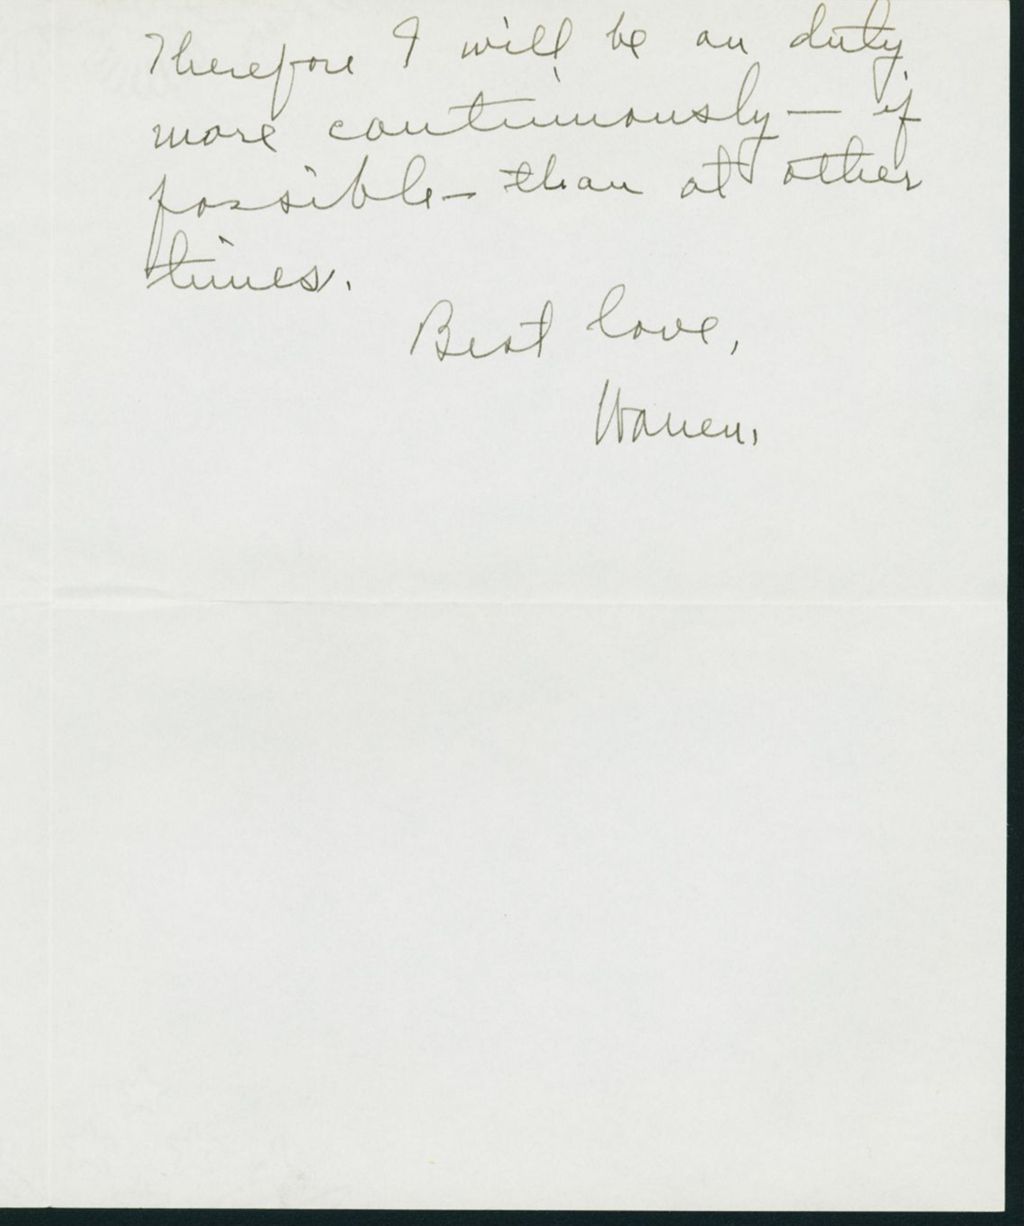 Therefore I will be on duty
more continuously — if
possible — than at other
times.
Best love,
Warren.